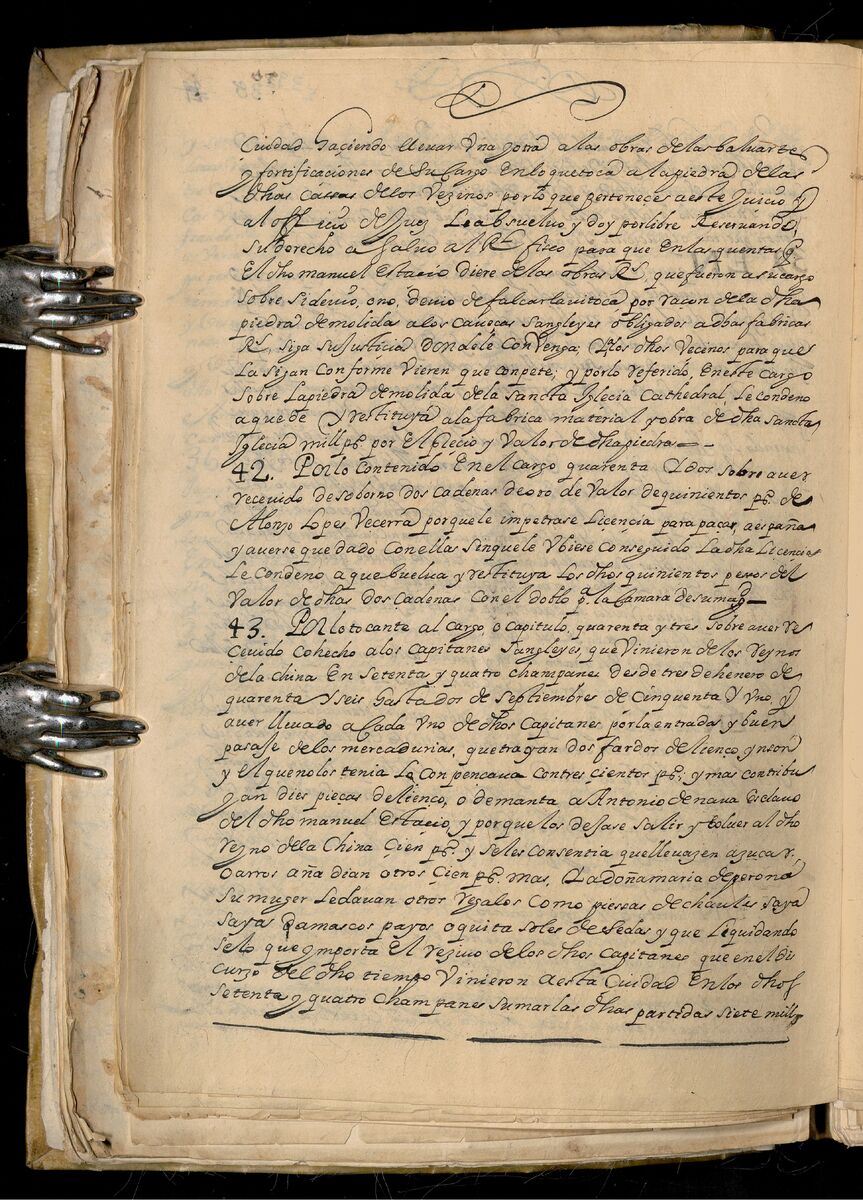 Ciudad haçiendo lleuar Vna y otra a las obras de las baluartes
y fortificaciones de Su Cargo En lo que toca a la piedra de las
dhas Cassas de los Vezinos por lo que perteneçe a este Juicio y
al officio de Juez Le absueluo y doy por libre Reseruando
Su derecho a Saluo al Rl fisco para que En las quentas q
El dho manuel Estacio diere de las obras Rs, que fueron a su cargo
Sobre Si deuio, o no, deuio de falcar la vitoca, por raçon de la dha
piedra demolida a los Caueças Sangleyes obligados a dhas fabricas
Rs, siga Su Justicia Donde le Conuenga; Y los dhos Vecinos para que
La sigan Conforme Vieren que conpete; y por lo referido, En este Cargo
Sobre La piedra demolida de la Sancta Iglecia Cathedral, Le condeno
a que de y rrestituya a la fabrica material y obra de dha Sancta
Iglecia mill ps. por El preçio y Valor de dha piedra
42. Por lo Contenido En el cargo quarenta Y dos sobre auer
receuido de soborno dos Cadenas de oro de Valor de quinientos ps. de
Alonzo Lopes Vecerra porque le impetrase Licençia para paçar, a españa
y auerse quedado Con ellas Sin que le Vbiese Conseguido La dha Licencia
Le Condeno a que buelua y restituya Los dhos quinientos pesos del
Valor de dhas dos Cadenas Con el doblo pa. la Camara de su magd
43. Por lo tocante al Cargo, o Capitulo, quarenta y tres Sobre auer Re
Ceuido Cohecho a los Capitanes Sangleyes, que Vinieron de los Reynos
de la China En Setenta y quatro champanes desde tres de henero de
quarenta Y seis hasta dos de Septiembres de Cinquenta Y Vno, y
auer lleuado a Cada Vno de dhos Capitanes por la entrada y buen
pasaje de los mercadurias, que trayan dos fardos de lienço ynson
y El que no los tenia Lo Conpençaua Con tres çientos ps; y mas contribu
yan dies pieças de lienço, o de manta a Antonio de naua Esclauo
del dho manuel Estacio, y porque los dejase Salir y boluer al dho
Reyno de la China Çien ps. y Se les Consentia que lleuazen azucar,
o arros añadian otros Çien ps. mas, Y a Doña maria de perona
Su muger Le dauan otros Regalos Como piesas de chaules saya
sayas Damascos payos o quita soles de sedas y que Liquidando
Se lo que ymporta El reziuo de los dhos Capitanes que en el dis
curzo del dho tiempo Vinieron a esta Ciudad En los dhos
setenta y quatro Champanes Sumar las dhas partidas siete mill